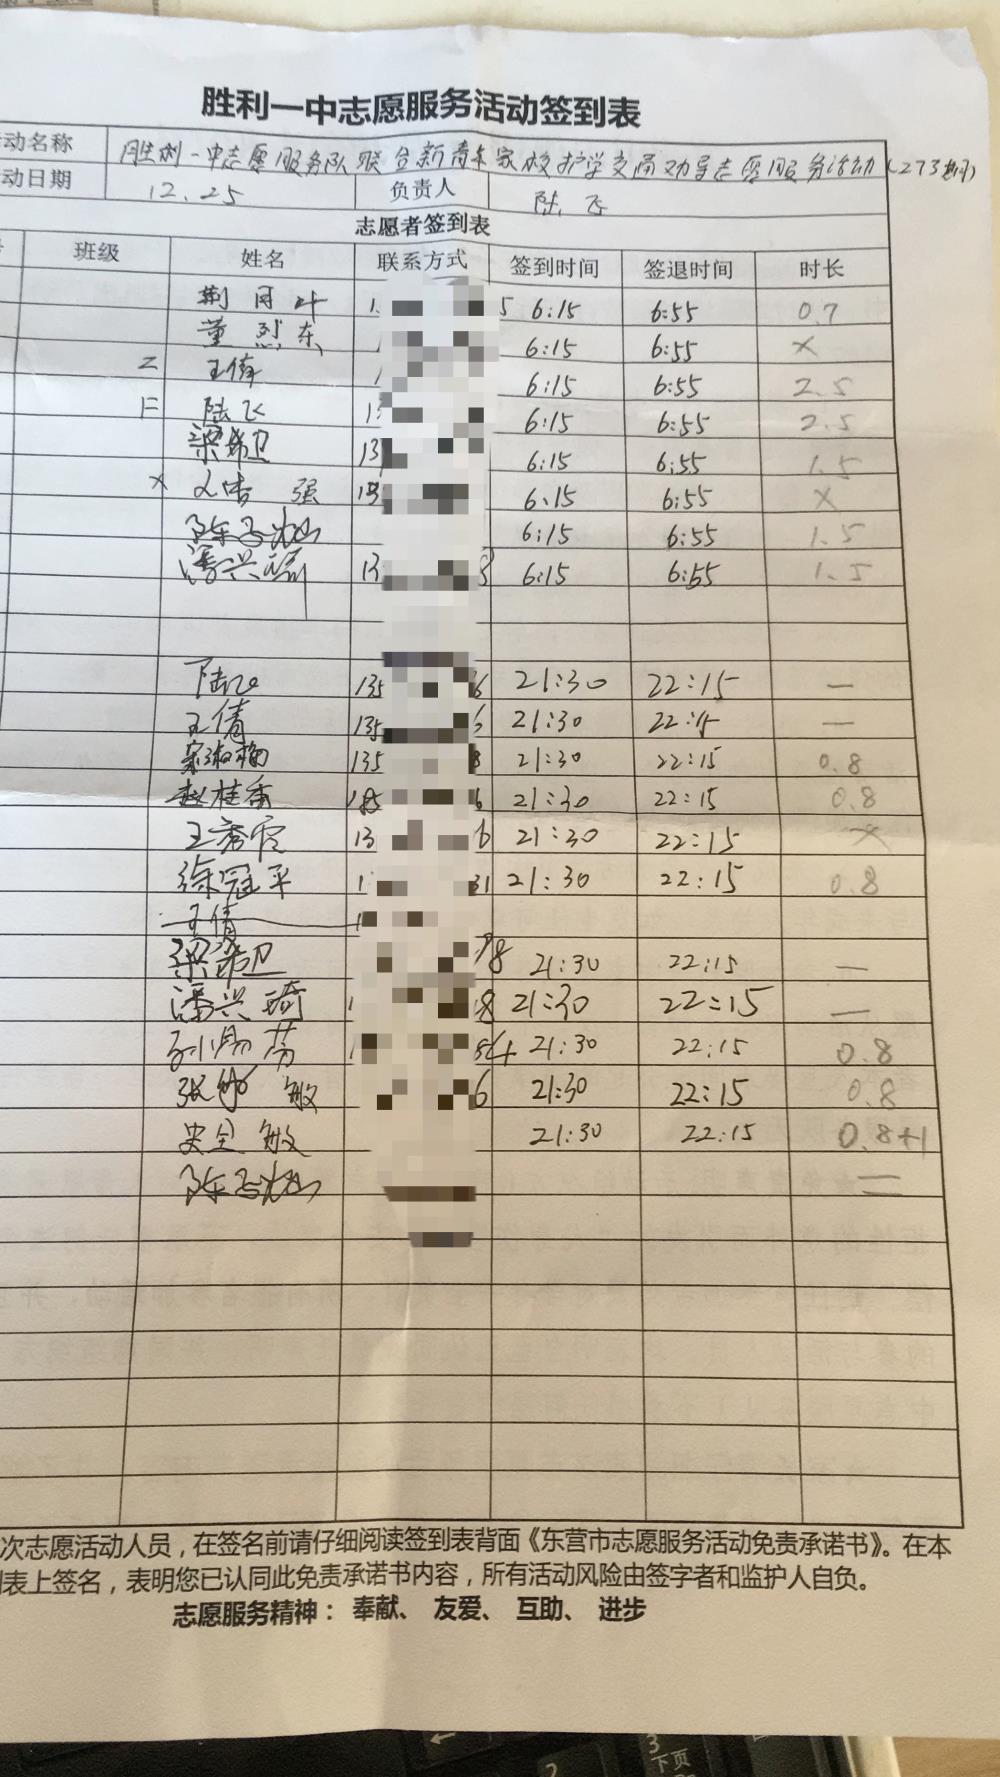 胜利一中志愿服务活动签到表
动名称 胜利一中志愿服务队联合新青年家校护学交通劝导志愿服务活动(273期)
动日期 12.25 负责人 陆飞
志愿者签到表
班级 姓名 联系方式 签到时间 签退时间 时长
荆月叶 1 5 6:15 6:55 0.7
董烈东 6:15 6:55 ×
王倩 6:15 6:55 2.5
陆飞 1 6:15 6:55 2.5
梁希卫 13 6:15 6:55 1.5
× 强 6:15 6:55 ×
6:15 6:55 1.5
潘兴 13 6:15 6:55 1.5
陆飞 135 6 21:30 22:15 —
王倩 135 21:30 22:15 —
宋淑梅 135 8 21:30 22:15 0.8
赵桂香 6 21:30 22:15 0.8
王秀霞 13 6 21:30 22:15 ×
徐冠平 1 31 21:30 22:15 0.8
王倩
梁希卫 78 21:30 22:15 —
潘兴琦 8 21:30 22:15 —
芳 54 21:30 22:15 0.8
张 敏 6 21:30 22:15 0.8
史全敏 21:30 22:15 0.8+1
次志愿活动人员，在签名前请仔细阅读签到表背面《东营市志愿服务活动免责承诺书》。在本
到表上签名，表明您已认同此免责承诺书内容，所有活动风险由签字者和监护人自负。
志愿服务精神：奉献、友爱、互助、进步
3
下页
2